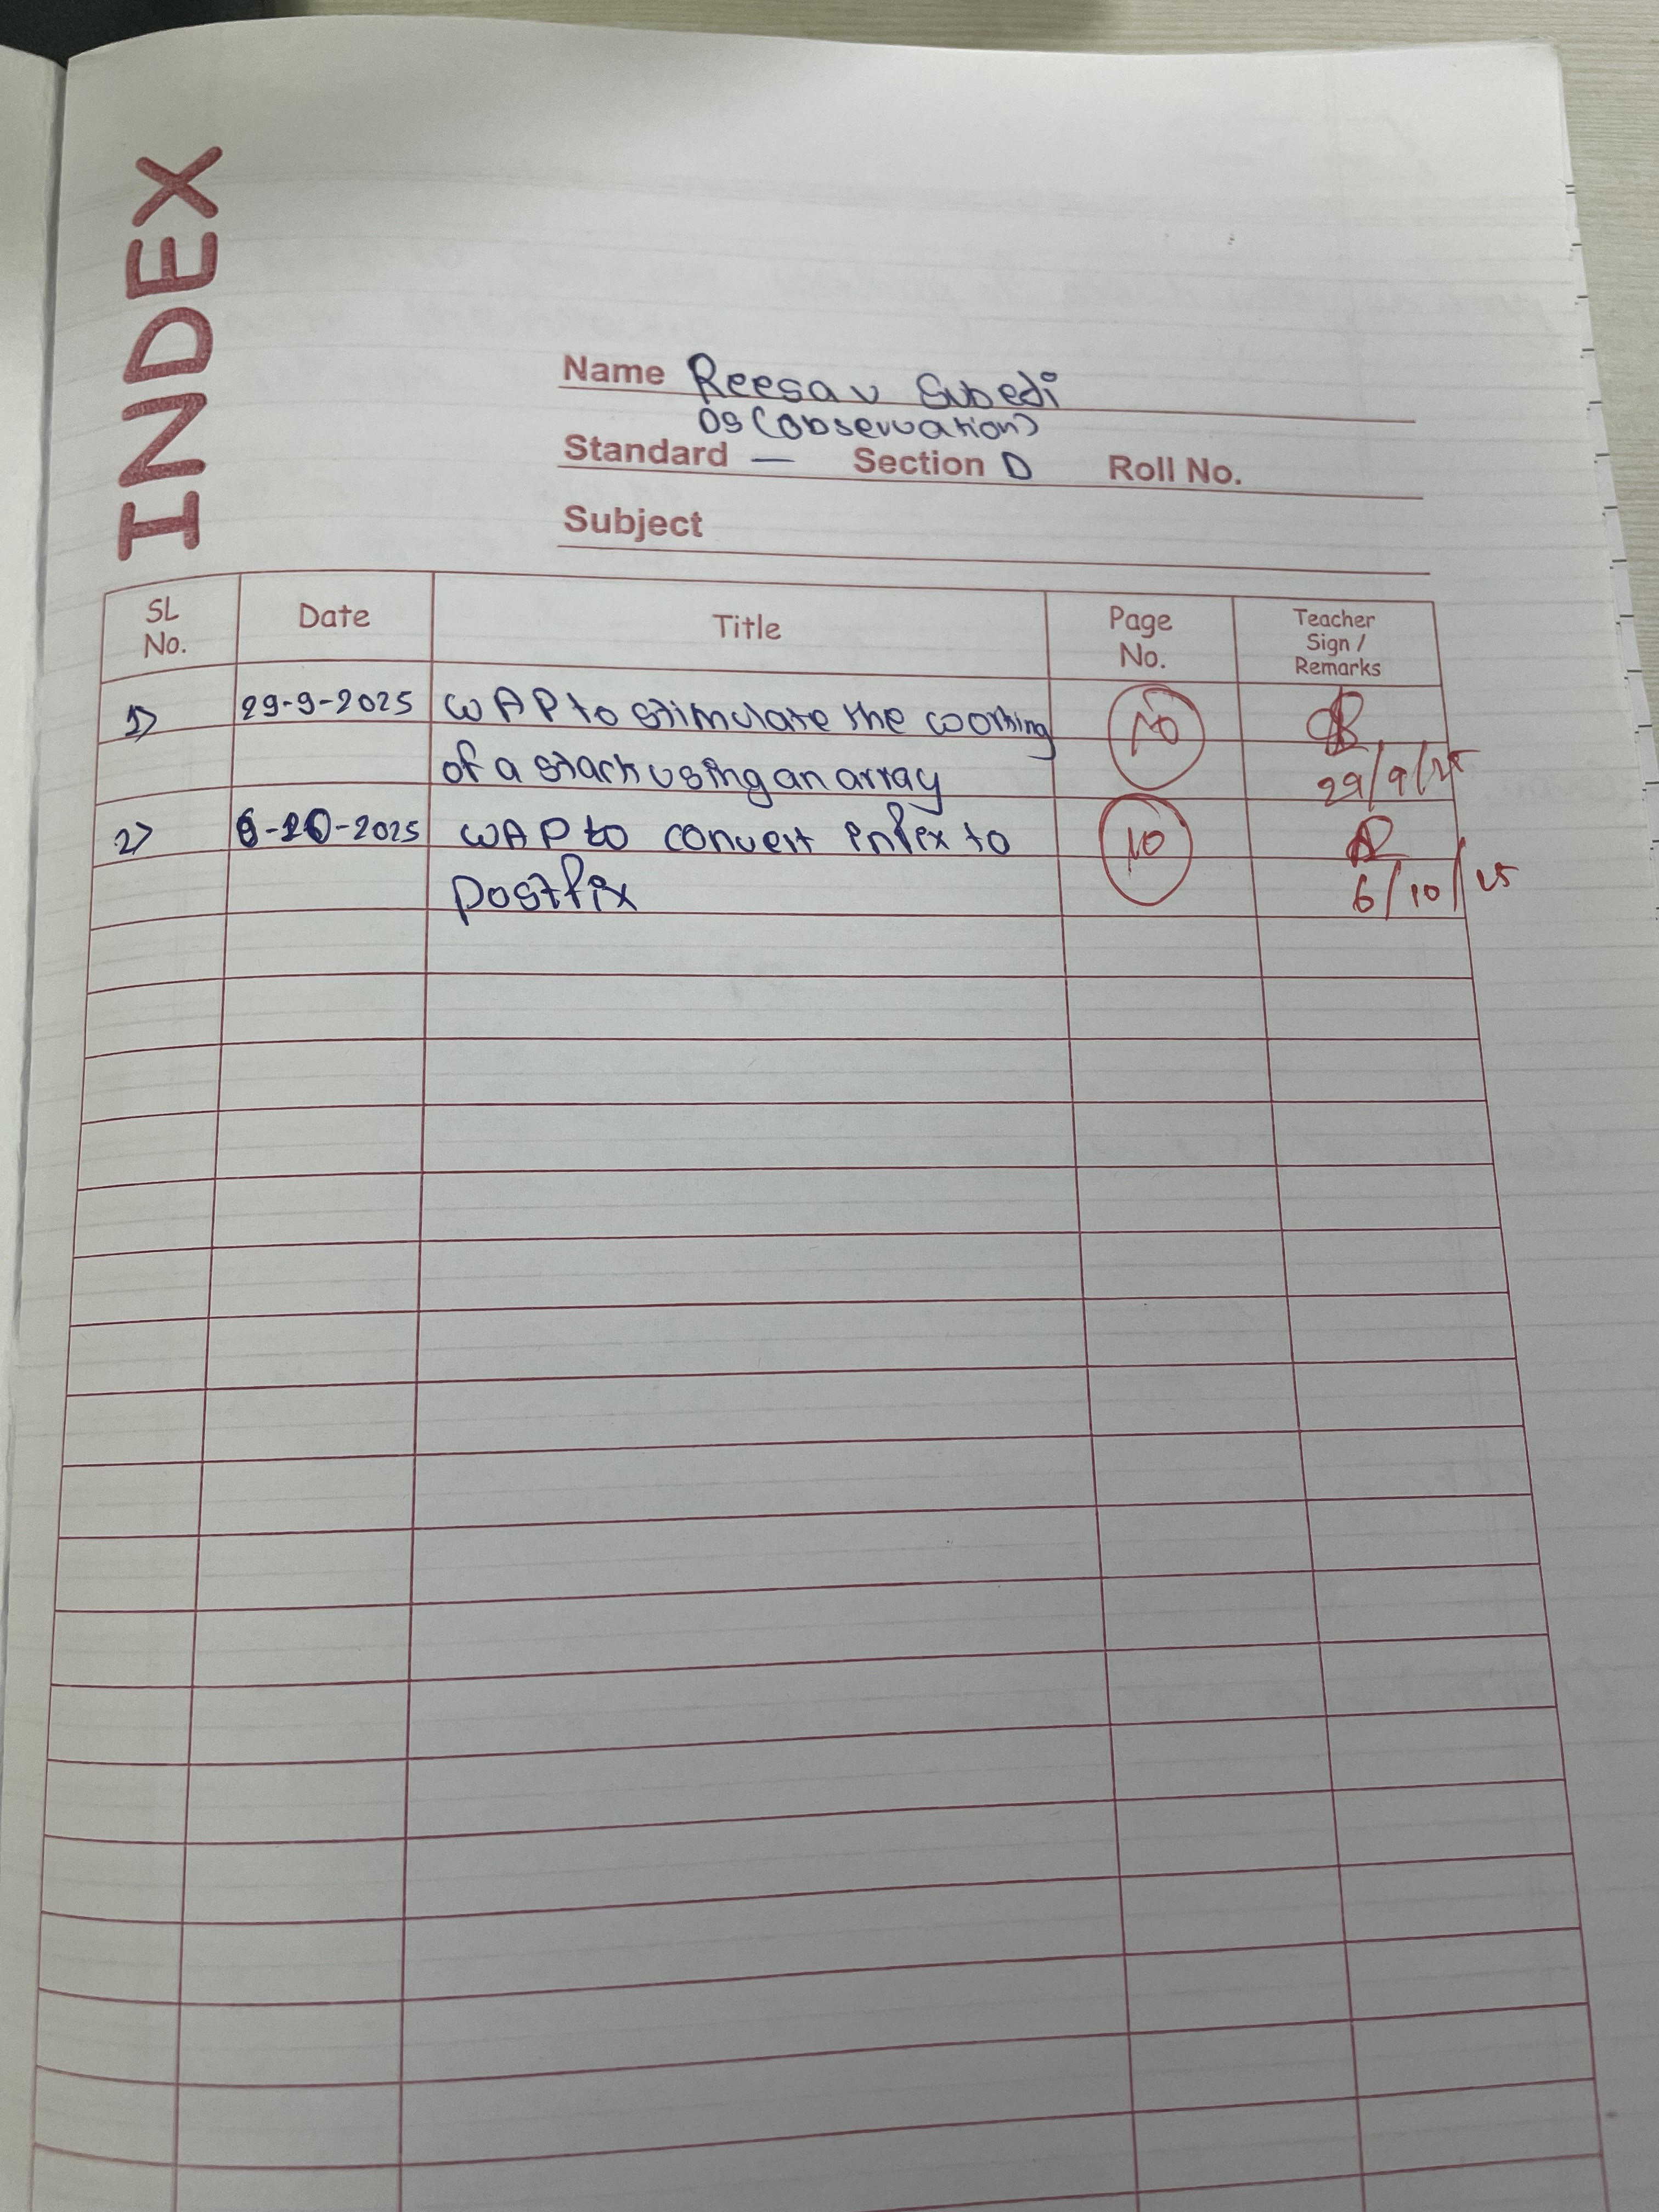 INDEX
Name Reesav Subedi
DS (Observation)
Standard — Section D Roll No.
Subject
SL No. Date Title Page No. Teacher Sign / Remarks
1) 29-9-2025 WAP to stimulate the working 10
of a stack using an array 29/9/25
2) 6-10-2025 WAP to convert infix to 10
postfix 6/10/25